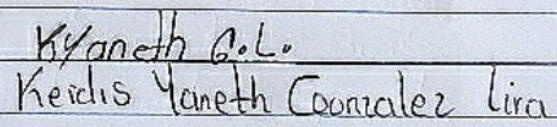 Kyaneth G.L.
Keidis Yaneth Gonzalez Lira